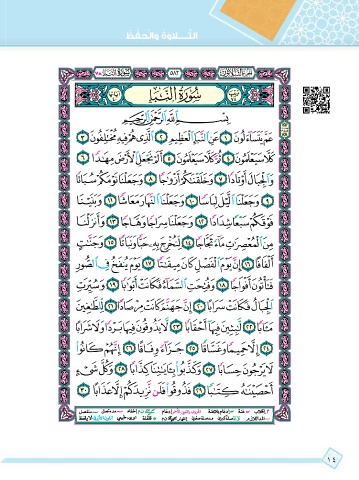 التـلاوة والحفظ
٥٨٢
سُورَةُ النَّبَإِ
بِسْمِ اللَّهِ الرَّحْمَٰنِ الرَّحِيمِ
عَمَّ يَتَسَاءَلُونَ ١ عَنِ النَّبَإِ الْعَظِيمِ ٢ الَّذِي هُمْ فِيهِ مُخْتَلِفُونَ ٣
كَلَّا سَيَعْلَمُونَ ٤ ثُمَّ كَلَّا سَيَعْلَمُونَ ٥ أَلَمْ نَجْعَلِ الْأَرْضَ مِهَٰدًا ٦
وَالْجِبَالَ أَوْتَادًا ٧ وَخَلَقْنَٰكُمْ أَزْوَٰجًا ٨ وَجَعَلْنَا نَوْمَكُمْ سُبَاتًا
٩ وَجَعَلْنَا الَّيْلَ لِبَاسًا ١٠ وَجَعَلْنَا النَّهَارَ مَعَاشًا ١١ وَبَنَيْنَا
فَوْقَكُمْ سَبْعًا شِدَادًا ١٢ وَجَعَلْنَا سِرَاجًا وَهَّاجًا ١٣ وَأَنزَلْنَا
مِنَ الْمُعْصِرَٰتِ مَاءً ثَجَّاجًا ١٤ لِّنُخْرِجَ بِهِ حَبًّا وَنَبَاتًا ١٥ وَجَنَّٰتٍ
أَلْفَافًا ١٦ إِنَّ يَوْمَ الْفَصْلِ كَانَ مِيقَٰتًا ١٧ يَوْمَ يُنفَخُ فِي الصُّورِ
فَتَأْتُونَ أَفْوَاجًا ١٨ وَفُتِحَتِ السَّمَاءُ فَكَانَتْ أَبْوَٰبًا ١٩ وَسُيِّرَتِ
الْجِبَالُ فَكَانَتْ سَرَابًا ٢٠ إِنَّ جَهَنَّمَ كَانَتْ مِرْصَادًا ٢١ لِّلطَّٰغِينَ
مَـَٔابًا ٢٢ لَّٰبِثِينَ فِيهَا أَحْقَابًا ٢٣ لَّا يَذُوقُونَ فِيهَا بَرْدًا وَلَا شَرَابًا
٢٤ إِلَّا حَمِيمًا وَغَسَّاقًا ٢٥ جَزَاءً وِفَاقًا ٢٦ إِنَّهُمْ كَانُوا
لَا يَرْجُونَ حِسَابًا ٢٧ وَكَذَّبُوا بِـَٔايَٰتِنَا كِذَّابًا ٢٨ وَكُلَّ شَيْءٍ
أَحْصَيْنَٰهُ كِتَٰبًا ٢٩ فَذُوقُوا فَلَن نَّزِيدَكُمْ إِلَّا عَذَابًا ٣٠
١٤